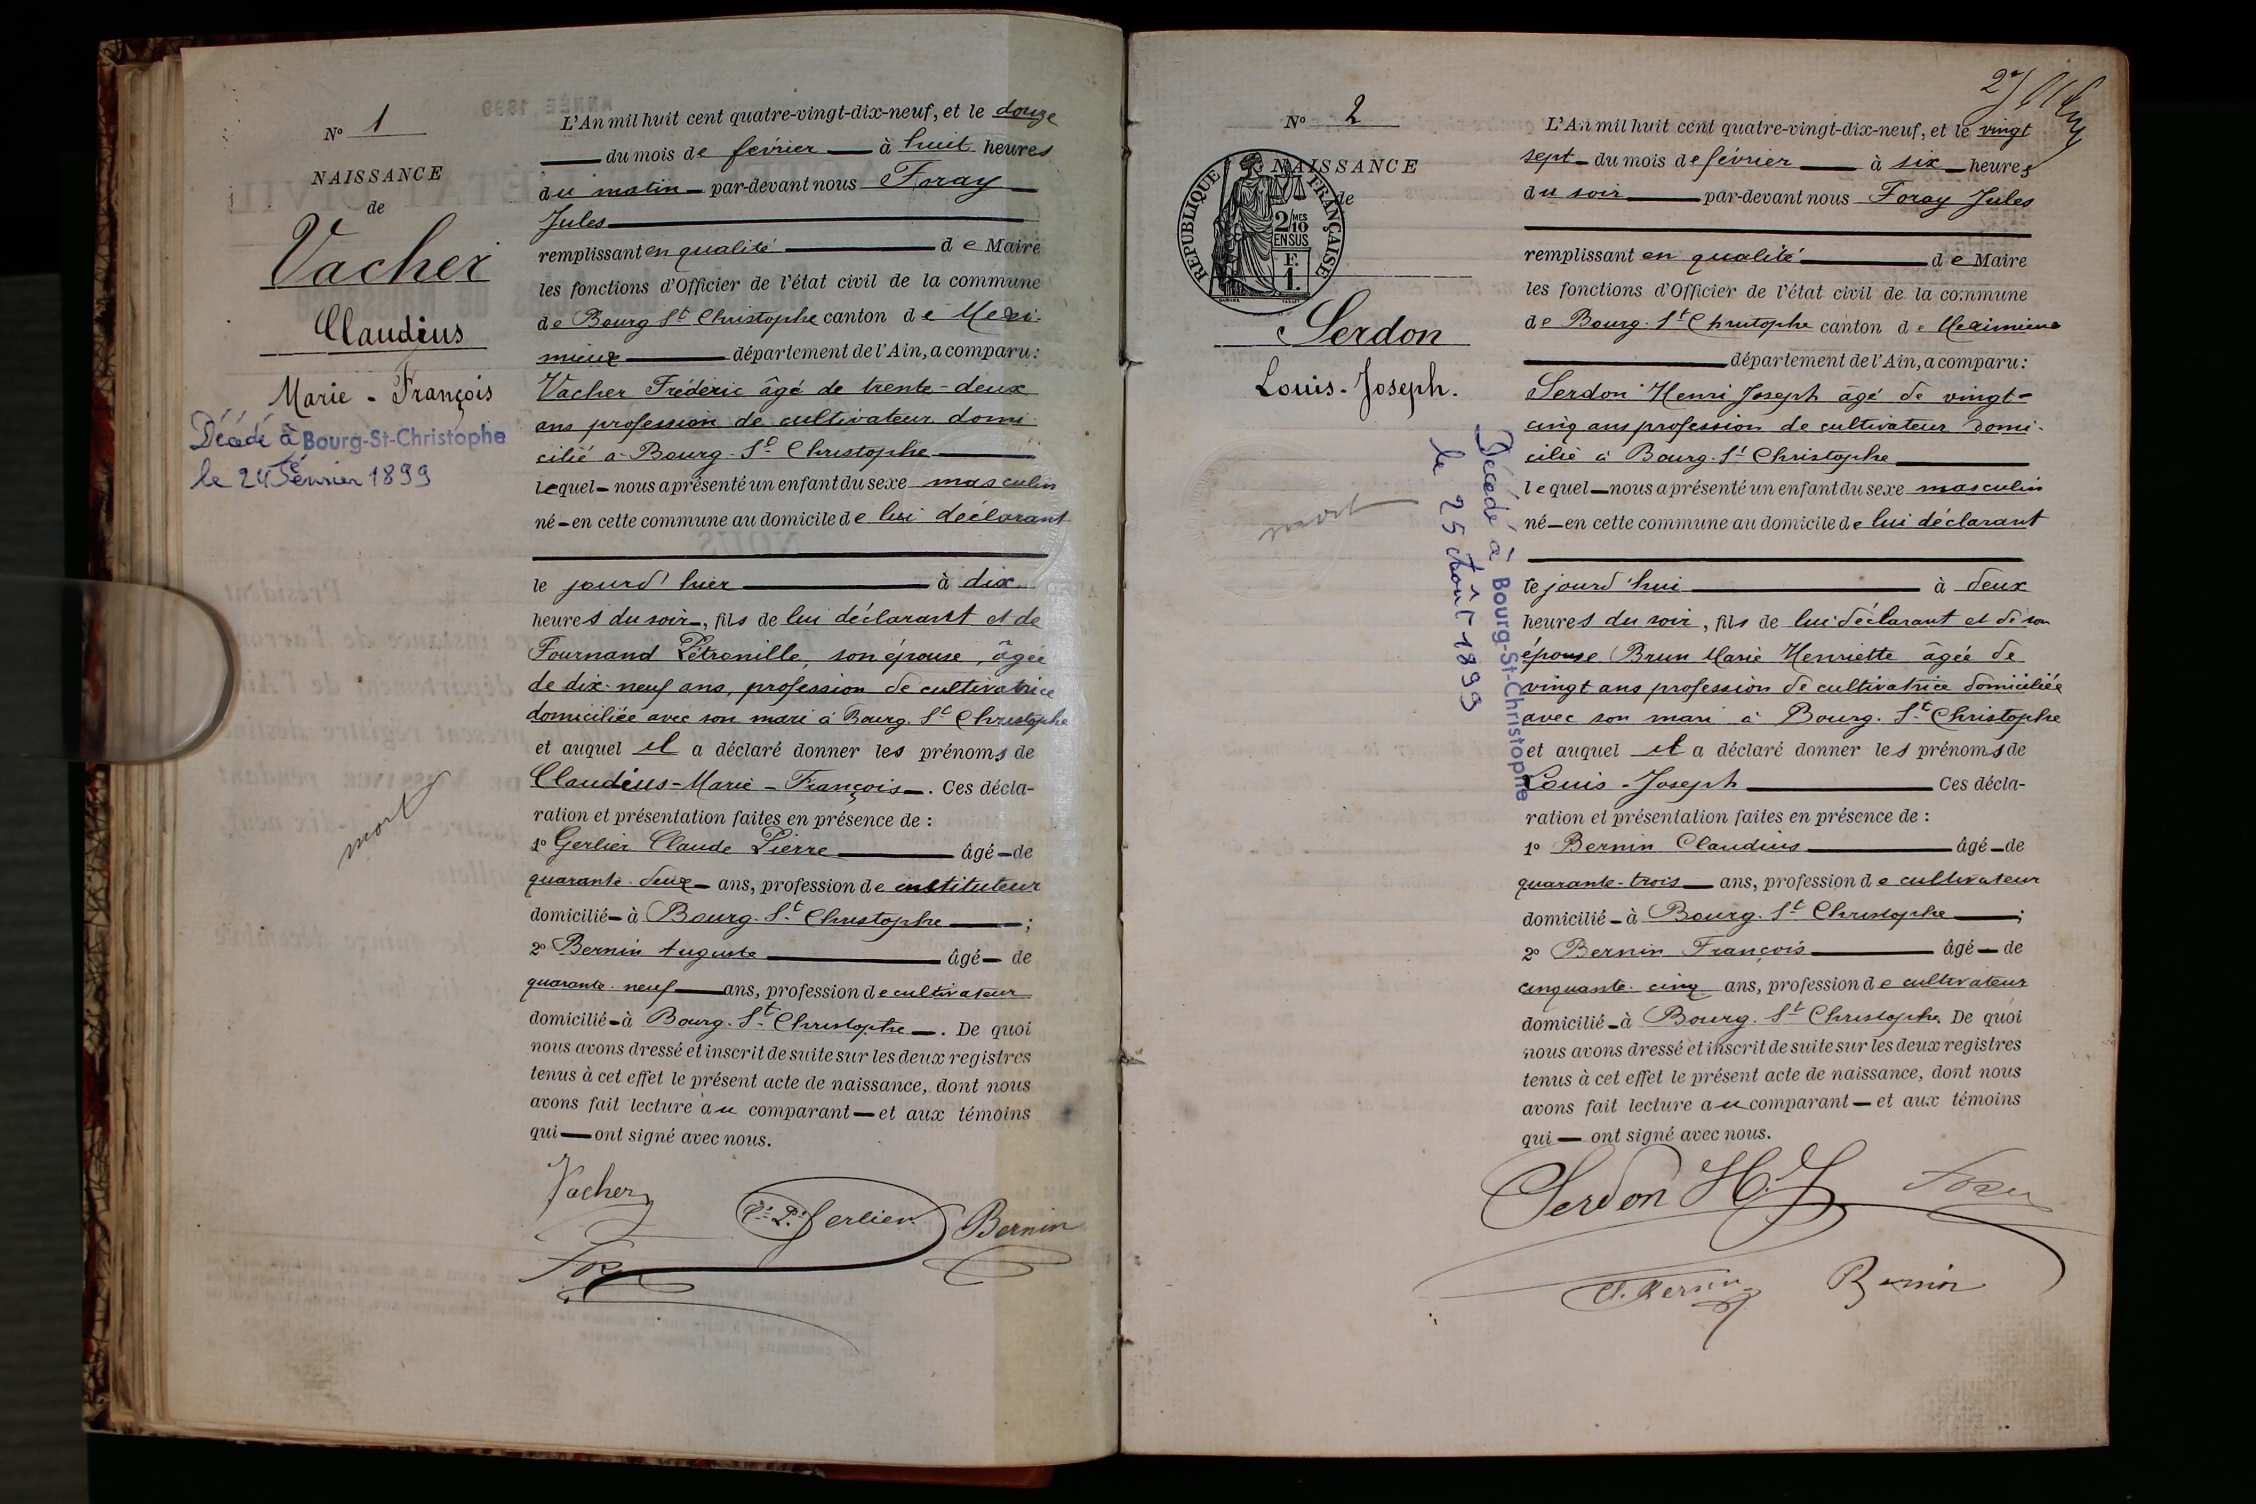 N° 1
NAISSANCE
de
Vacher
Claudius
Marie - François
Décédé à Bourg-St-Christophe
le 24 Février 1899
mort
L'An mil huit cent quatre-vingt-dix-neuf, et le douze
du mois de février à huit heures
du matin par-devant nous Foray
Jules
remplissant en qualité de Maire
les fonctions d'Officier de l'état civil de la commune
de Bourg St Christophe canton de Mexi-
mieux département de l'Ain, a comparu :
Vacher Frédéric âgé de trente-deux
ans profession de cultivateur domi-
cilié à Bourg-St Christophe
lequel nous a présenté un enfant du sexe masculin
né en cette commune au domicile de lui déclarant
le jourd'hier à dix
heures du soir, fils de lui déclarant et de
Fournand Pétronille, son épouse, âgée
de dix-neuf ans, profession de cultivatrice
domiciliée avec son mari à Bourg-St Christophe
et auquel il a déclaré donner les prénoms de
Claudius-Marie-François. Ces décla-
ration et présentation faites en présence de :
1° Gerlier Claude Pierre âgé de
quarante-deux ans, profession de instituteur
domicilié à Bourg-St Christophe ;
2° Bernin Auguste âgé de
quarante-neuf ans, profession de cultivateur
domicilié à Bourg-St Christophe. De quoi
nous avons dressé et inscrit de suite sur les deux registres
tenus à cet effet le présent acte de naissance, dont nous
avons fait lecture au comparant et aux témoins
qui ont signé avec nous.
Vacher
Cde P. Gerlier
Bernin
Foray
N° 2
NAISSANCE
de
REPUBLIQUE FRANÇAISE
2/10 MES
EN SUS
F.
1.
Serdon
Louis-Joseph.
mort
Décédé à Bourg-St-Christophe
le 25 Août 1899
L'An mil huit cent quatre-vingt-dix-neuf, et le vingt
sept du mois de février à six heures
du soir par-devant nous Foray Jules
remplissant en qualité de Maire
les fonctions d'Officier de l'état civil de la commune
de Bourg-St Christophe canton de Meximieux
département de l'Ain, a comparu :
Serdon Henri Joseph âgé de vingt-
cinq ans profession de cultivateur domi-
cilié à Bourg-St Christophe
lequel nous a présenté un enfant du sexe masculin
né en cette commune au domicile de lui déclarant
le jourd'hui à deux
heures du soir, fils de lui déclarant et de son
épouse Brun Marie Henriette âgée de
vingt ans profession de cultivatrice domiciliée
avec son mari à Bourg-St Christophe
et auquel il a déclaré donner les prénoms de
Louis-Joseph Ces décla-
ration et présentation faites en présence de :
1° Bernin Claudius âgé de
quarante-trois ans, profession de cultivateur
domicilié à Bourg-St Christophe ;
2° Bernin François âgé de
cinquante-cinq ans, profession de cultivateur
domicilié à Bourg-St Christophe. De quoi
nous avons dressé et inscrit de suite sur les deux registres
tenus à cet effet le présent acte de naissance, dont nous
avons fait lecture au comparant et aux témoins
qui ont signé avec nous.
Serdon H. J.
Foray
C. Bernin
Bernin